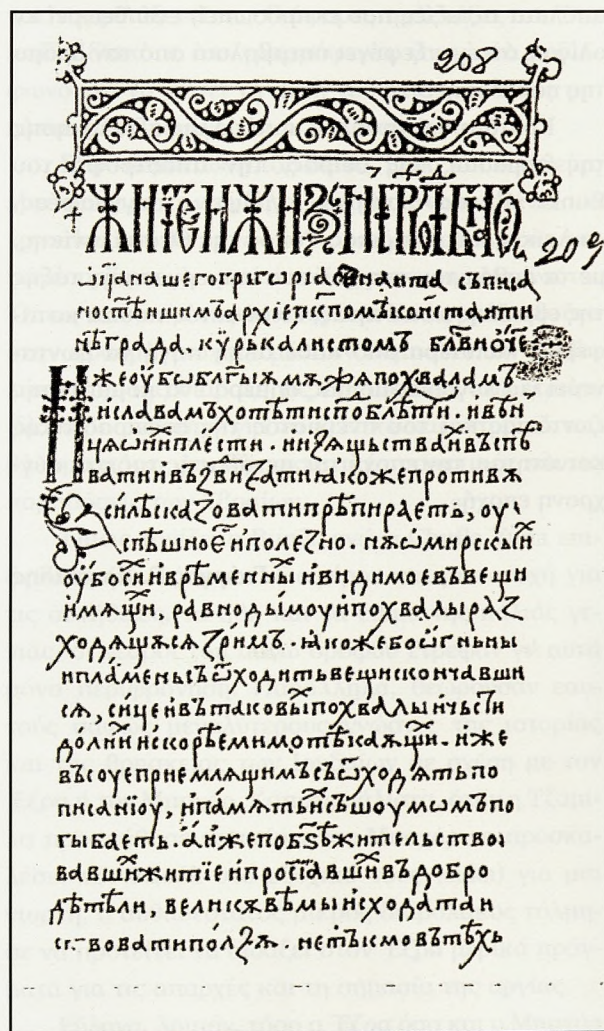 208
209
ѡц҃а нашего григорїа синаита съписа
ностѣишимъ архїеп҃скпомъ конⷭ҇таⷩ҇тин
нѣ града. кѵръ калистомъ бл҃ви ѡ҃че
Иже оубѡ бл҃гыⷨ мѫжѧ похваламъ
и славамъ хотѣти сподобⷧ҇ѣти. и вѣн
цы ѡни плести. и изѧщьствїа и въспѣ
вати и въздвиꙁати ꙗкоже противѫ
силѣ скаꙁовати прѣпираеть. оу
спѣшно еⷭ҇ и полеꙁно. нѫ ѡ мирⷭ҇кыⷯи
оубо еⷭ҇ и врѣменⷩ҇ныⷯ и видимое въ вещи
имѧщиⷯ, равно дымоу и похвалы раꙁ
ходѧщѧ сѧ ꙁримъ. ꙗкоже бо ѻгньны
и пламены съѿходить вещи скончавши
сѧ, сице и въ таковыⷯ похвалы и чьсти
долнїиⷯ и скорѣе мимотѣкаѫщиⷯ. иже
въсоуе прїемлѧщимъ съѿходѧть по
писанїоу, и памѧть иⷯ съ шоумомъ по
гыбаеть. а иже по бѕ҃ѣ жительство
вавшиⷯ житїе и просїавшиⷯ въ добро
дѣтели, велиѫ вѣмы исходатаи
ствовати полꙁѫ. не тъкмо въ тѣхь